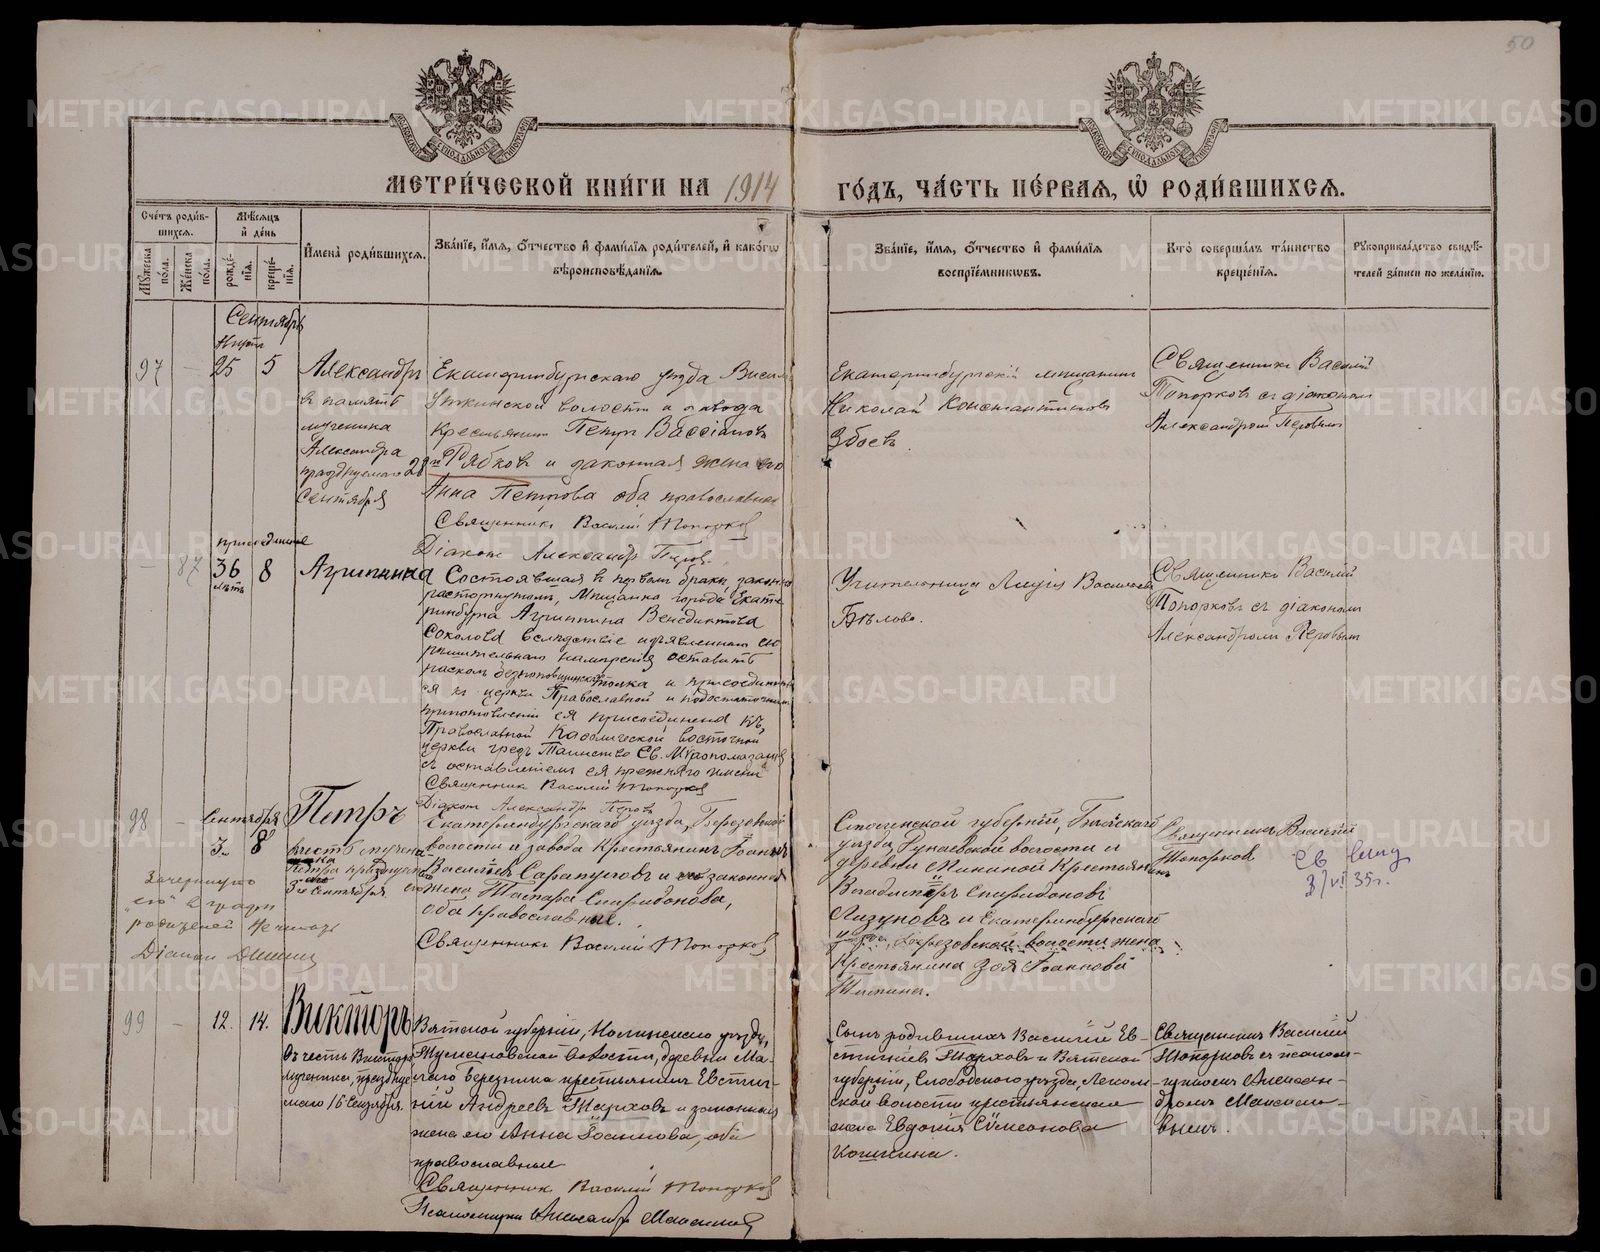 50
МЕТРИ́ЧЕСКОЙ КНИ́ГИ НА 1914
ГО́ДЪ, ЧА́СТЬ ПЕ́РВАЯ, Ѡ҆ РОДИ́ВШИХСЯ.
Сче́тъ роди́в-
шихся.
Мѣ́сяцъ
и҆ де́нь
Мꙋ́жеска
пола.
Же́нска
пола.
рожде́-
нїѧ.
креще́-
нїѧ.
И҆мена̀ роди́вшихся.
Зва́нїе, и҆́мя, ѻ҆́тчество и҆ фами́лїя роди́телей, и҆ како́гѡ
вѣроисповѣ́данїя.
Зва́нїе, и҆́мя, ѻ҆́тчество и҆ фами́лїя
воспрїе́мникѡвъ.
Кто̀ соверша́лъ та́инство
креще́нїя.
Рꙋкоприкла́дство свидѣ́-
телей за́писи по жела́нїю.
Сентябрь
97 – 25 5
Александръ
въ память
мученика
Александра
празднуемаго 28
сентября
Екатеринбургскаго уѣзда Висимо
Уткинской волости и завода
крестьянинъ Петръ Вассіановъ
Рябковъ и законная жена его
Анна Петрова оба православные
Священникъ Василій Топорковъ
Діаконъ Александръ Перовъ
Екатеринбургскій мѣщанинъ
Николай Константиновъ
Збоевъ
Священникъ Василій
Топорковъ съ діакономъ
Александромъ Перовымъ
присоединение
– 87 36 8
лѣтъ
Агрипина
Состоявшая въ первомъ бракѣ законно
расторгнутомъ, Мѣщанка города Екате-
ринбурга Агриппина Венедиктова
Соколова вслѣдствіе изъявленнаго ею
рѣшительнаго намѣренія оставить
раскол безпоповщинскаго толка и присоединить
ся къ церкви Православной и по достаточномъ
приготовленіи ея присоединена къ
Православной Каѳолической восточной
церкви чрезъ Таинство Св. Мѵропомазанія
съ оставленіемъ ея прежняго имени
Священникъ Василій Топорковъ
Діаконъ Александръ Перовъ
Учительница Лидія Васильева
Бѣлова.
Священникъ Василій
Топорковъ съ діакономъ
Александромъ Перовымъ
98 – Сентября
3. 8
Петръ
въ честь мучени-
ка
Петра празднуемаго
3го сентября
Зачеркнуто
"его" въ графѣ
родителей
Діакон
Екатеринбургскаго уѣзда, Березовской
волости и завода Крестьянинъ Іоаннъ
Васильевъ Сарапуловъ и законная его
жена Тамара Спиридонова,
оба православные.
Священникъ Василій Топорковъ
губерніи,
уѣзда, волости и
деревни Крестьянинъ
Владиміръ Спиридоновъ
Лизуновъ и Екатеринбургскаго
уѣзда, Березовской волости жена
Крестьянина Зоя Іоаннова
Священникъ Василій
Топорковъ
Св
3/VI 35г.
99 – 12. 14.
Викторъ
Въ честь Виктора
мученика, праздну-
емаго 16 Сентября.
Вятской губерніи, Нолинскаго уѣзда,
волости, деревни Ма-
лаго Березника крестьянинъ Евстиг-
ній Андреевъ Шарховъ и законная
жена его Анна Іоаннова, оба
православные
Священникъ Василій Топорковъ
Псаломщикъ Александръ
Сынъ родившихъ Василій Ев-
стигніевъ Шарховъ и Вятской
губерніи, Слободского уѣзда,
ской волости крестьянская
жена Евдокія Сѵмеонова
Кошкина.
Священникъ Василій
Топорковъ съ псалом-
щикомъ Алексан-
дромъ
METRIKI.GASO-URAL.RU